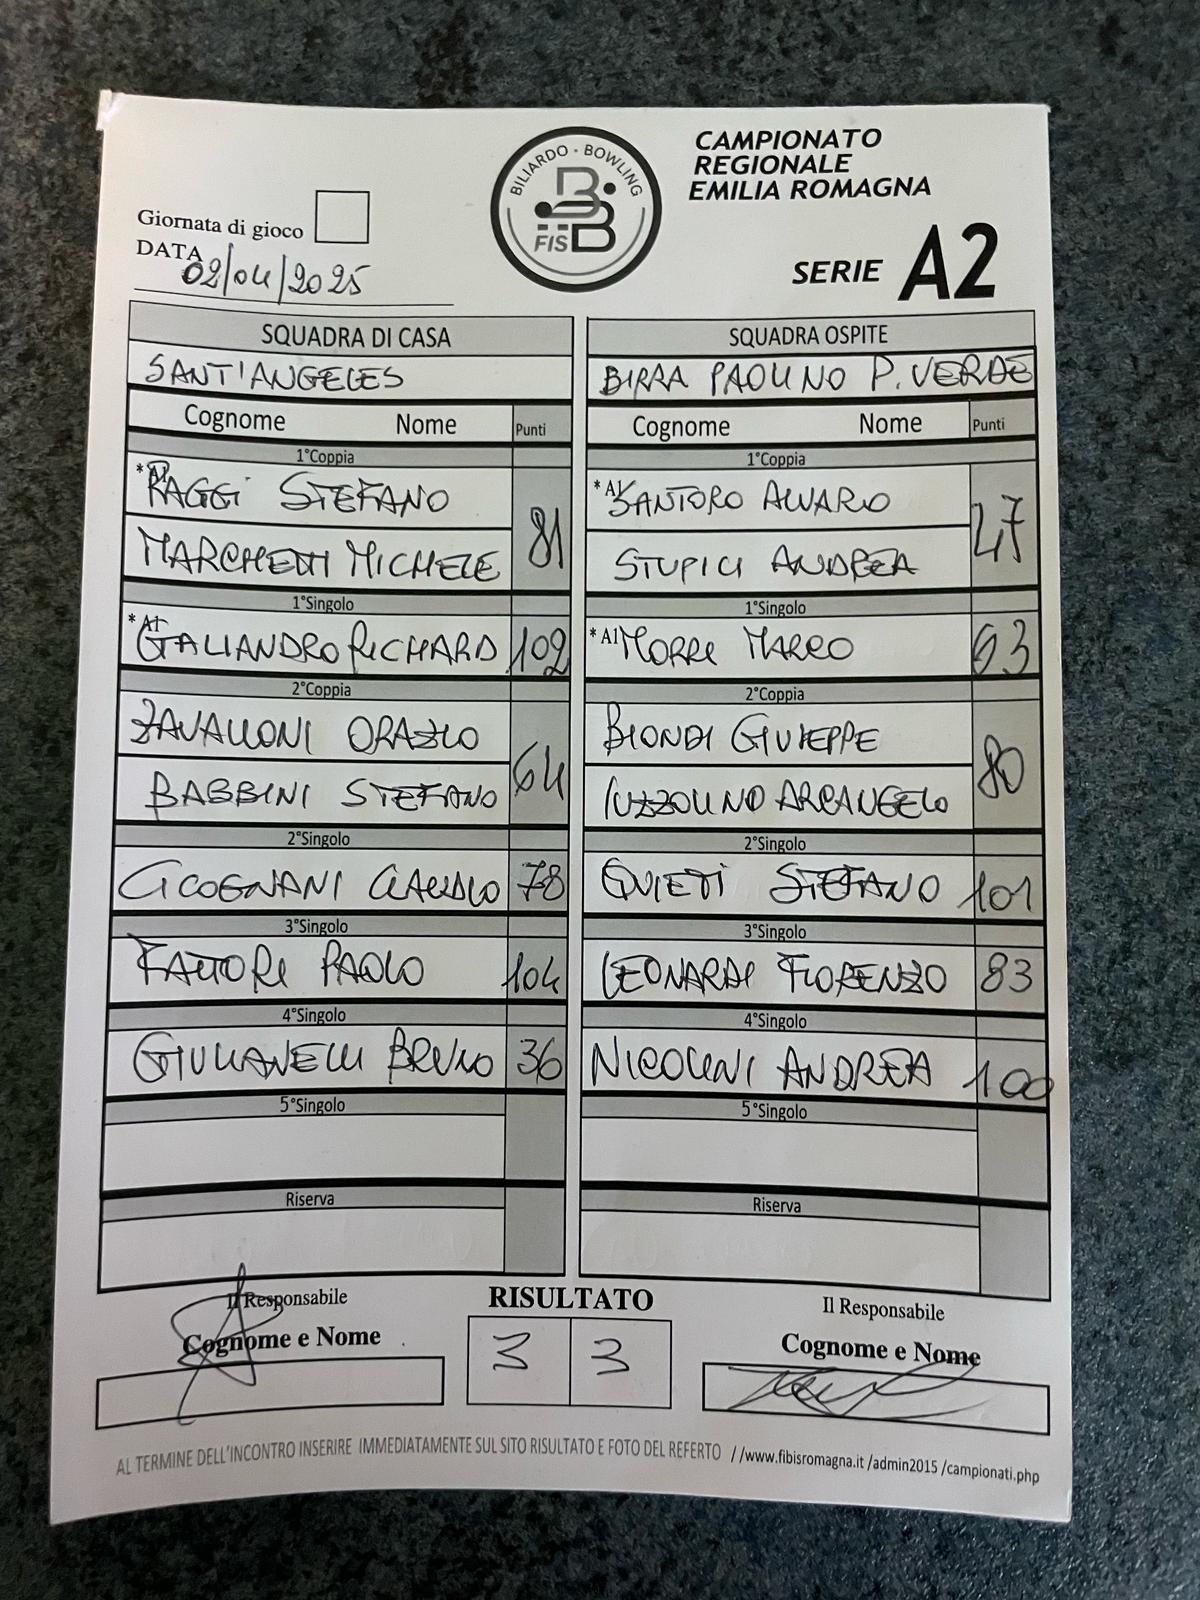 BILIARDO - BOWLING
FISBB
CAMPIONATO
REGIONALE
EMILIA ROMAGNA
SERIE A2
Giornata di gioco
DATA 02/04/2025
SQUADRA DI CASA SQUADRA OSPITE
SANT'ANGELES BIRRA PAOLINO P. VERDE
Cognome Nome Punti Cognome Nome Punti
1°Coppia 1°Coppia
*A1 RAGGI STEFANO 81 *A1 SANTORO ALVARO 47
MARCHETTI MICHELE STUPICI ANDREA
1°Singolo 1°Singolo
*A1 GALIANDRO RICHARD 102 *A1 MORRI MARCO 63
2°Coppia 2°Coppia
ZAVALLONI ORAZIO 64 BIONDI GIUSEPPE 80
BABBINI STEFANO IUZZOLINO ARCANGELO
2°Singolo 2°Singolo
CICOGNANI CLAUDIO 78 QUIETI STEFANO 101
3°Singolo 3°Singolo
FATTORI PAOLO 104 LEONARDI FLORENZO 83
4°Singolo 4°Singolo
GIULIANELLI BRUNO 36 NICOLINI ANDREA 100
5°Singolo 5°Singolo
Riserva Riserva
Il Responsabile RISULTATO Il Responsabile
Cognome e Nome 3 3 Cognome e Nome
AL TERMINE DELL'INCONTRO INSERIRE IMMEDIATAMENTE SUL SITO RISULTATO E FOTO DEL REFERTO //www.fibisromagna.it /admin2015 /campionati.php